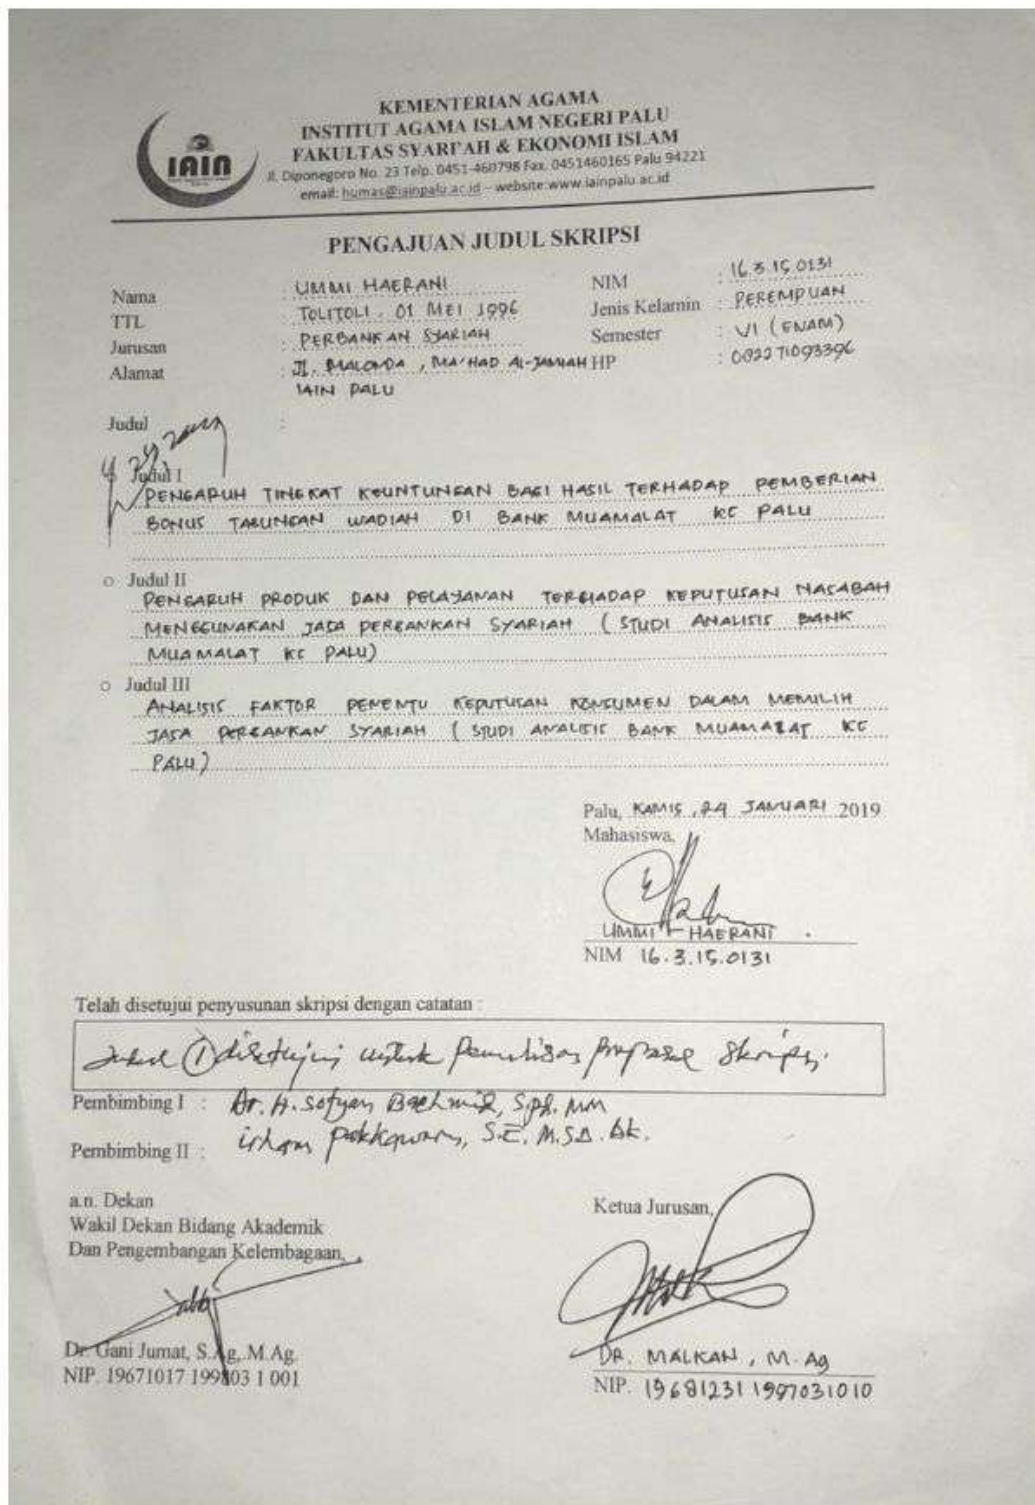 KEMENTERIAN AGAMA
INSTITUT AGAMA ISLAM NEGERI PALU
FAKULTAS SYARI'AH & EKONOMI ISLAM
Jl. Diponegoro No. 23 Telp. 0451-460798 Fax. 0451460165 Palu 94221
email: humas@iainpalu.ac.id – website:www.iainpalu.ac.id
IAIN
PENGAJUAN JUDUL SKRIPSI
Nama : UMMI HAERANI NIM : 16.3.15.0131
TTL : TOLITOLI, 01 MEI 1996 Jenis Kelamin : PEREMPUAN
Jurusan : PERBANKAN SYARIAH Semester : VI (ENAM)
Alamat : Jl. MALONDA, MA'HAD AL-JAMIAH HP : 082271093396
IAIN PALU
Judul :
Judul I
PENGARUH TINGKAT KEUNTUNGAN BAGI HASIL TERHADAP PEMBERIAN
BONUS TABUNGAN WADIAH DI BANK MUAMALAT KC PALU
o Judul II
PENGARUH PRODUK DAN PELAYANAN TERHADAP KEPUTUSAN NASABAH
MENGGUNAKAN JASA PERBANKAN SYARIAH (STUDI ANALISIS BANK
MUAMALAT KC PALU)
o Judul III
ANALISIS FAKTOR PENENTU KEPUTUSAN KONSUMEN DALAM MEMILIH
JASA PERBANKAN SYARIAH (STUDI ANALISIS BANK MUAMALAT KC
PALU)
Palu, KAMIS, 24 JANUARI 2019
Mahasiswa,
UMMI HAERANI
NIM 16.3.15.0131
Telah disetujui penyusunan skripsi dengan catatan :
Judul (1) disetujui untuk penulisan proposal skripsi.
Pembimbing I : Dr. H. Sofyan Bachmid, S.Pd. MM
Pembimbing II : Irham Pakkawaru, S.E. M.SA. Ak.
a.n. Dekan
Wakil Dekan Bidang Akademik
Dan Pengembangan Kelembagaan,
Ketua Jurusan,
Dr. Gani Jumat, S.Ag, M.Ag.
NIP. 19671017 199803 1 001
DR. MALKAN, M.Ag
NIP. 19681231 1997031010